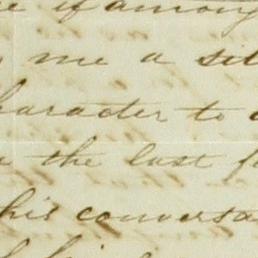 if among
me a
character to
the last
his conversa